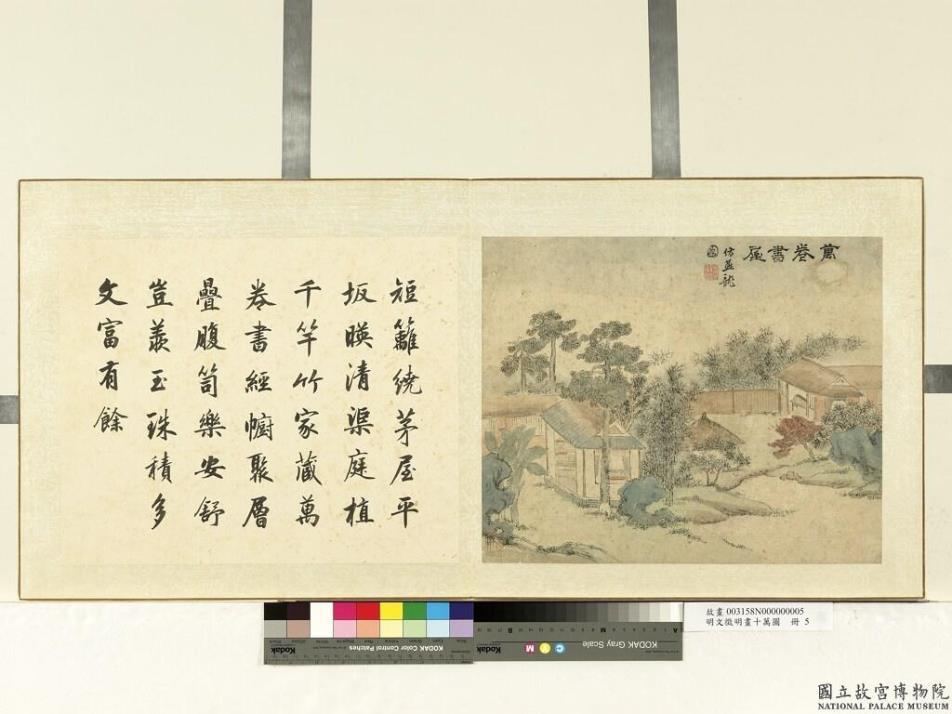 萬卷書屋
仿孟龍
圖
短籬繞茅屋平
坂暎清渠庭植
千竿竹家藏萬
卷書經幮聚層
疊腹笥樂安舒
豈羨玉珠積多
文富有餘
Kodak
KODAK Color Control Patches
Kodak
C Y M
KODAK Gray Scale
故畫 003158N000000005
明文徵明畫十萬圖 冊 5
國立故宮博物院
NATIONAL PALACE MUSEUM